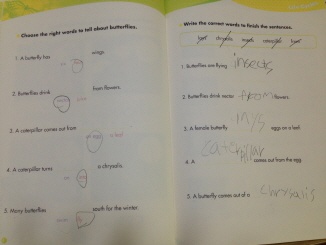 Choose the right words to tell about butterflies.
1. A butterfly has wings.
2. Butterflies drink from flowers.
3. A caterpillar comes out from
an egg a leaf
4. A caterpillar turns a chrysalis.
5. Many butterflies south for the winter.
Write the correct words to finish the sentences.
1. Butterflies are flying insects
2. Butterflies drink nectar from flowers.
3. A female butterfly lays eggs on a leaf.
4. A caterpillar comes out from the egg.
5. A butterfly comes out of a chrysalis